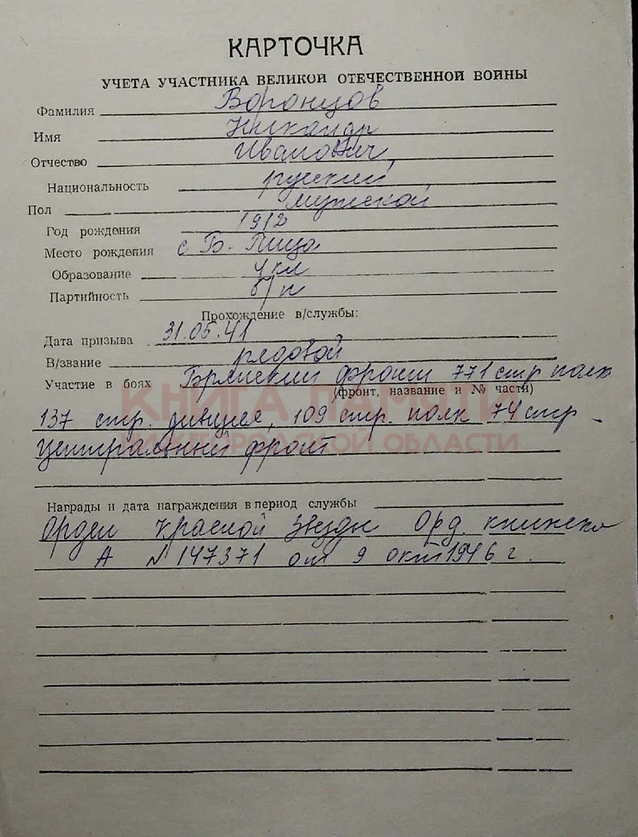 КАРТОЧКА
УЧЕТА УЧАСТНИКА ВЕЛИКОЙ ОТЕЧЕСТВЕННОЙ ВОЙНЫ
Фамилия Воронцов
Имя Никандр
Отчество Иванович
Национальность русский
Пол мужской
Год рождения 1912
Место рождения с Б-Пица
Образование 4 кл
Партийность б/п
Прохождение в/службы:
Дата призыва 31.05.41
В/звание рядовой
Участие в боях Брянский фронт 771 стр полк
(фронт, название и № части)
137 стр. дивизия, 109 стр. полк 74 стр
Центральный фронт
КНИГА ПАМЯТИ
НИЖЕГОРОДСКОЙ ОБЛАСТИ
Награды и дата награждения в период службы
Орден Красной Звезды Орд. книжска
А №147371 от 9 окт 1946 г.